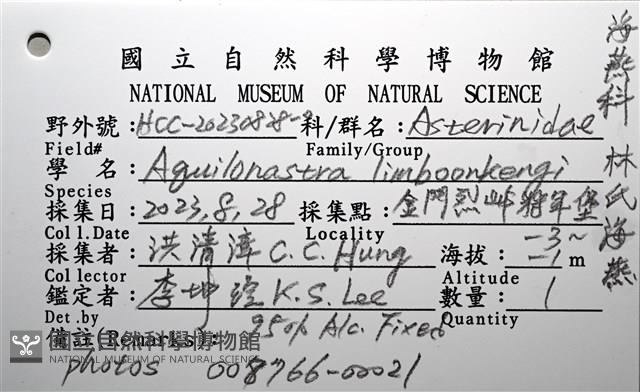 國立自然科學博物館
NATIONAL MUSEUM OF NATURAL SCIENCE
野外號:HCC-20230828- 科/群名:Asterinidae
Field# Family/Group
學名:Aquilonastra limboonkengi
Species
採集日:2023,8,28 採集點:金門烈嶼將軍堡
Coll.Date Locality
採集者:洪清漳 C.C. Hung 海拔:-3~-1 m
Collector Altitude
鑑定者:李坤瑄 K.S. Lee 數量:1
Det.by Quantity
備註(Remarks): 95% Alc. Fixed
photos 008766-00021
海燕科 林氏海燕
國立自然科學博物館
NATIONAL MUSEUM OF NATURAL SCIENCE